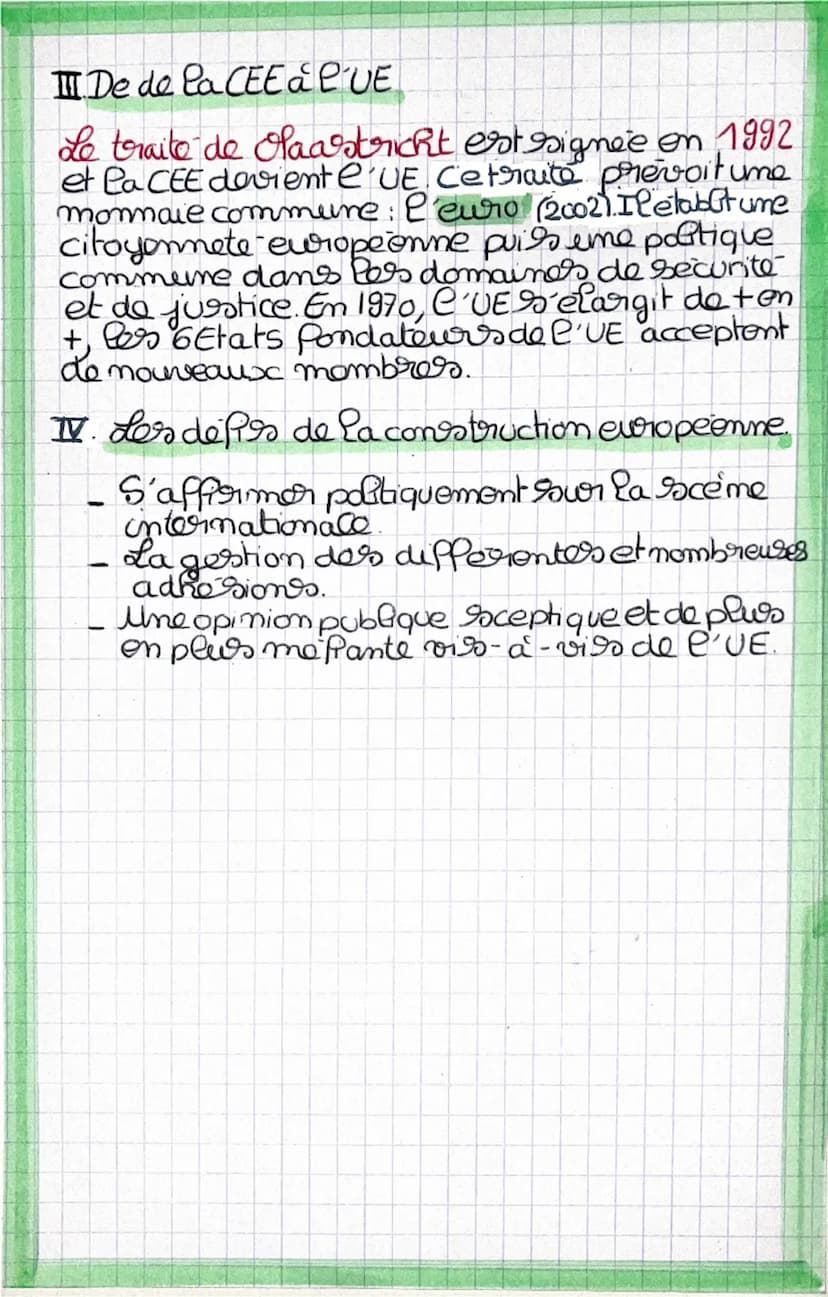 III. De de la CEE à l'UE
Le traité de Maastricht est signée en 1992
et la CEE devient l'UE. Ce traité prévoit une
monnaie commune : l'euro (2002). Il établit une
citoyenneté européenne puis une politique
commune dans les domaines de sécurité
et de justice. En 1970, l'UE s'élargit de + en
+, les 6 Etats fondateurs de l'UE acceptent
de nouveaux membres.
IV. Les défis de la construction européenne.
- S'affirmer politiquement sur la scène
internationale.
- La gestion des différentes et nombreuses
adhésions.
- Une opinion publique sceptique et de plus
en plus méfiante vis-à-vis de l'UE.